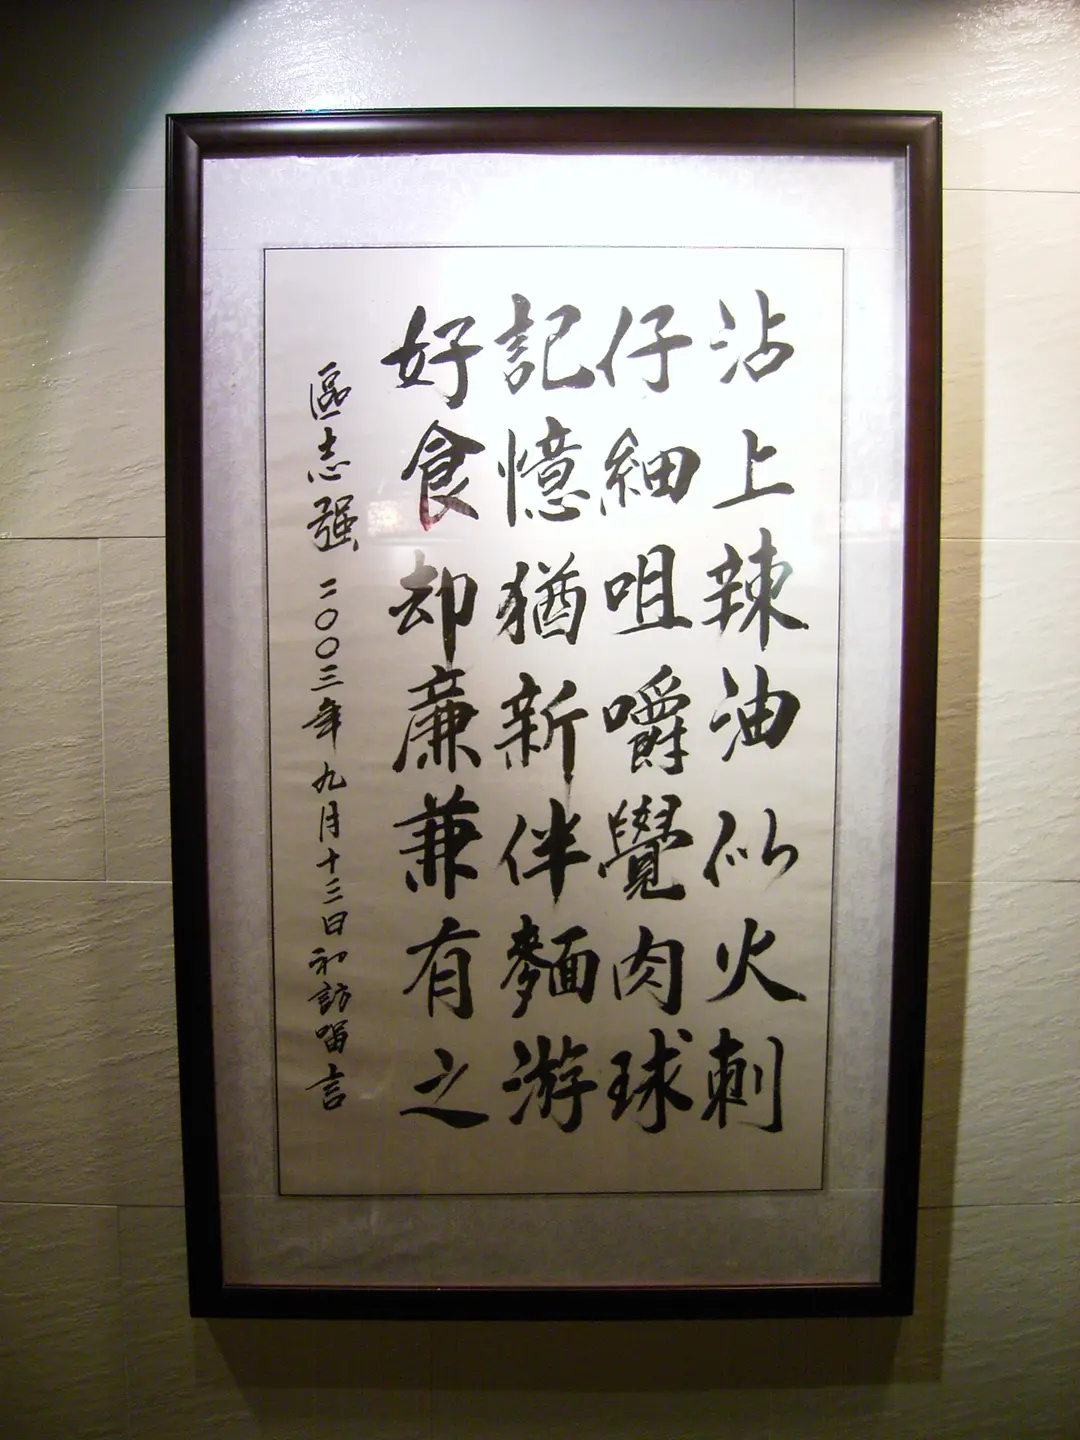 沾上辣油似火刺
仔細咀嚼覺肉球
記憶猶新伴麵游
好食却廉兼有之
區志强 二〇〇三年九月十三日初訪留言